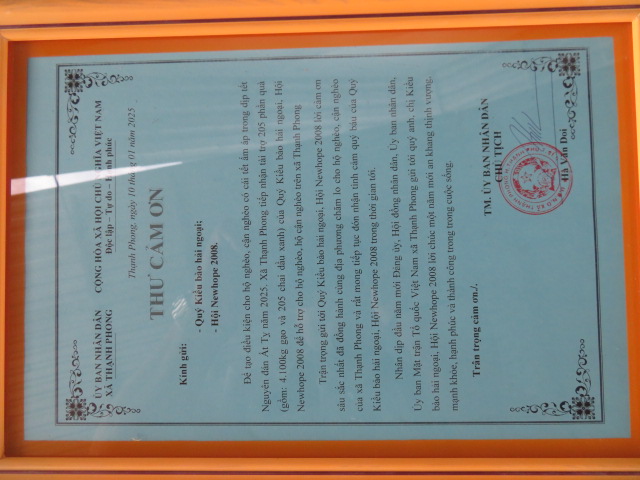 ỦY BAN NHÂN DÂN
XÃ THẠNH PHONG
CỘNG HÒA XÃ HỘI CHỦ NGHĨA VIỆT NAM
Độc lập – Tự do – Hạnh phúc
Thạnh Phong, ngày 10 tháng 01 năm 2025
THƯ CẢM ƠN
Kính gửi:
- Quý Kiều bào hải ngoại;
- Hội Newhope 2008.
Để tạo điều kiện cho hộ nghèo, cận nghèo có cái tết ấm áp trong dịp tết
Nguyên đán Ất Tỵ năm 2025. Xã Thạnh Phong tiếp nhận tài trợ 205 phần quà
(gồm: 4.100kg gạo và 205 chai dầu xanh) của Quý Kiều bào hải ngoại, Hội
Newhope 2008 để hỗ trợ cho hộ nghèo, hộ cận nghèo trên xã Thạnh Phong
Trân trọng gửi tới Quý Kiều bào hải ngoại, Hội Newhope 2008 lời cảm ơn
sâu sắc nhất đã đồng hành cùng địa phương chăm lo cho hộ nghèo, cận nghèo
của xã Thạnh Phong và rất mong tiếp tục đón nhận tình cảm quý báu của Quý
Kiều bào hải ngoại, Hội Newhope 2008 trong thời gian tới.
Nhân dịp đầu năm mới Đảng ủy, Hội đồng nhân dân, Ủy ban nhân dân,
Ủy ban Mặt trận Tổ quốc Việt Nam xã Thạnh Phong gửi tới quý anh, chị Kiều
bào hải ngoại, Hội Newhope 2008 lời chúc một năm mới an khang thịnh vượng,
mạnh khỏe, hạnh phúc và thành công trong cuộc sống.
Trân trọng cảm ơn./.
TM. ỦY BAN NHÂN DÂN
CHỦ TỊCH
Hà Văn Đời